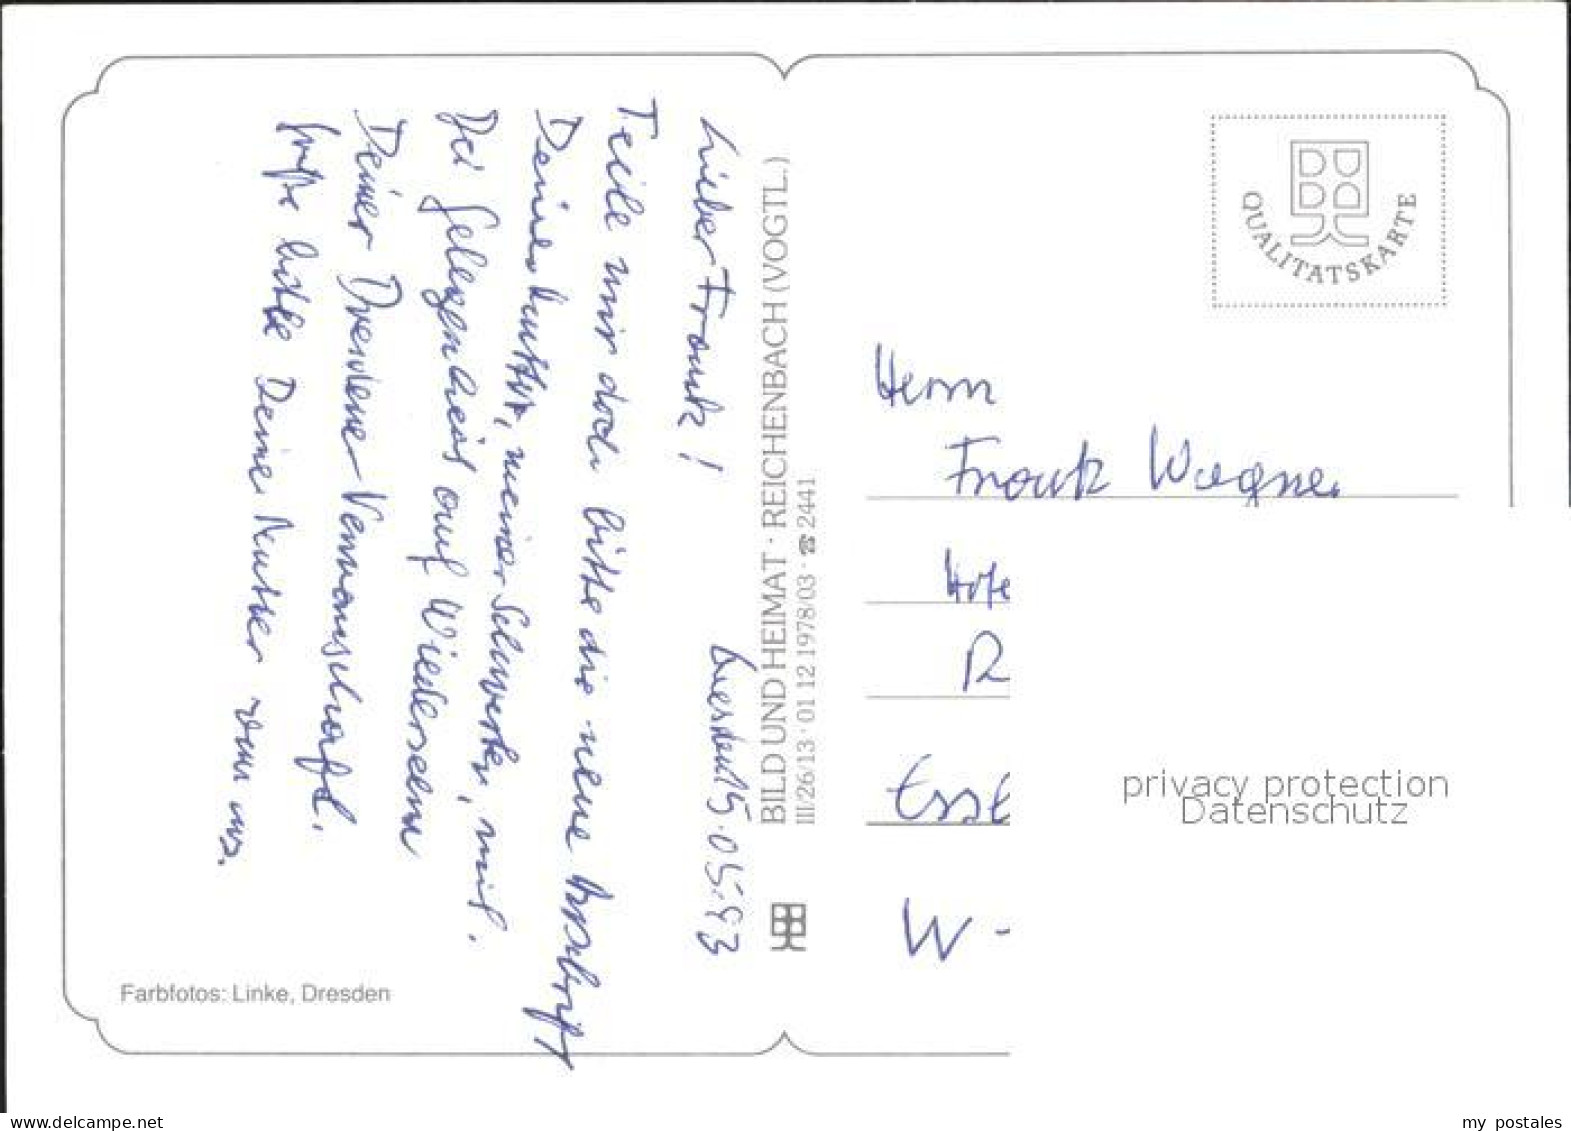 Lieber Frank!
Dresden 15.05.93
Teile mir doch bitte die neue Anschrift
Deiner Mutter, meiner Schwester, mit.
Bei Gelegenheit auf Wiedersehn
Deiner Dresdener Verwandschaft.
Grüße bitte Deine Mutter von uns.
BILD UND HEIMAT · REICHENBACH (VOGTL.)
III/26/13 · 01 12 1978/03 · ☎ 2441
Farbfotos: Linke, Dresden
QUALITÄTSKARTE
Herrn
Frank Wagner
Hote
R
Esse
W -
privacy protection
Datenschutz
www.delcampe.net
my postales